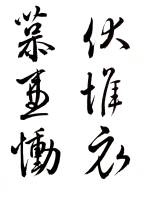 伏惟哀
慕慟